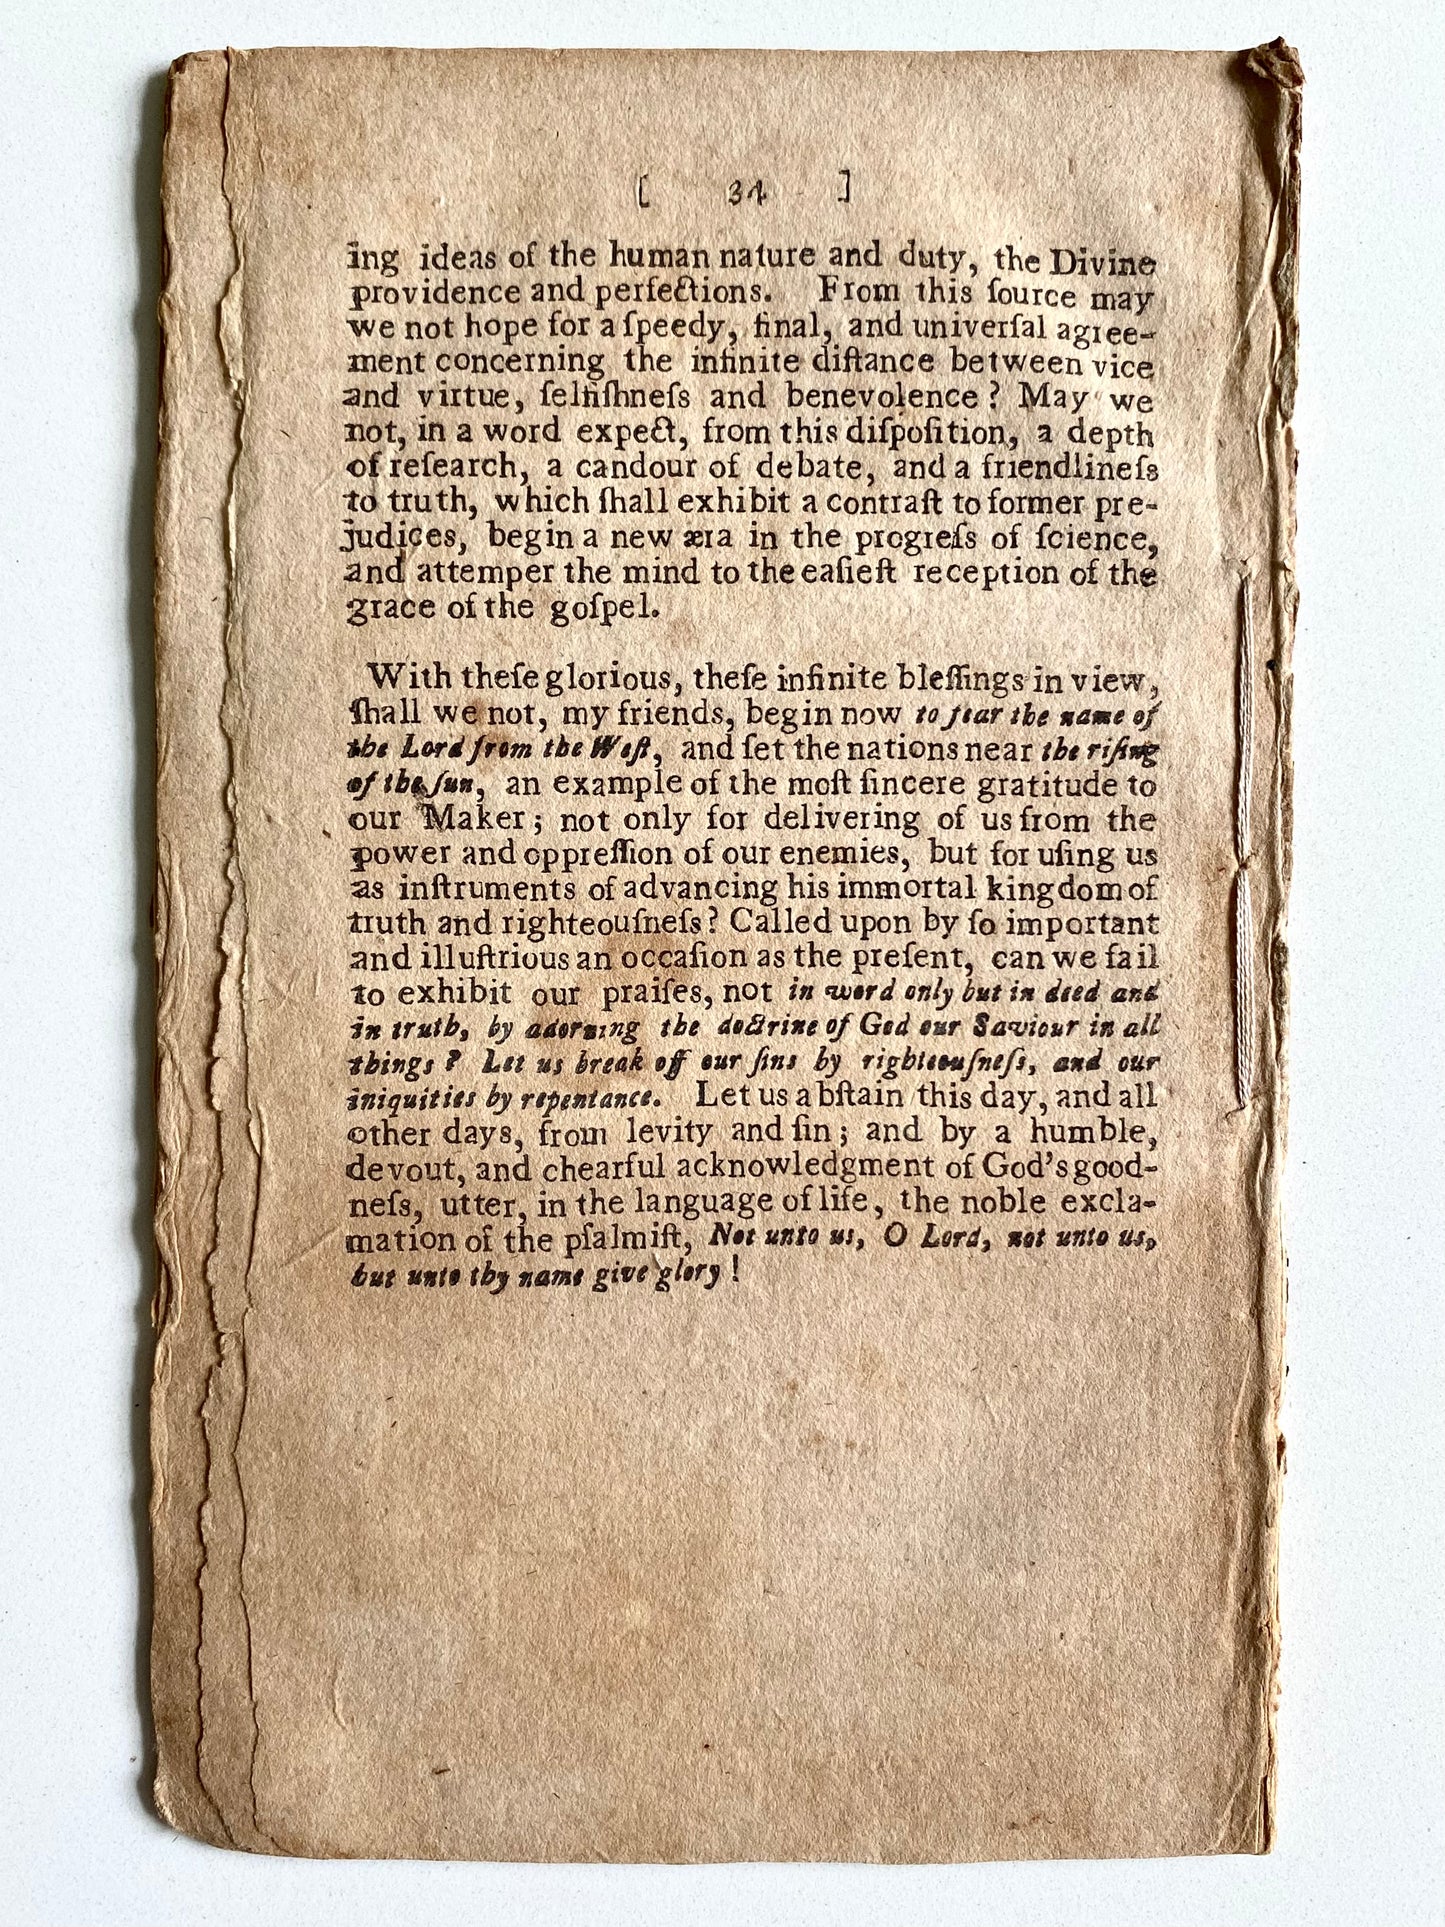 [ 34 ]
ing ideas of the human nature and duty, the Divine
providence and perfections. From this ſource may
we not hope for a ſpeedy, final, and univerſal agree-
ment concerning the infinite diſtance between vice
and virtue, ſelfiſhneſs and benevolence? May we
not, in a word expect, from this diſpoſition, a depth
of reſearch, a candour of debate, and a friendlineſs
to truth, which ſhall exhibit a contraſt to former pre-
judices, begin a new æra in the progreſs of ſcience,
and attemper the mind to the eaſieſt reception of the
grace of the goſpel.
With theſe glorious, theſe infinite bleſſings in view,
ſhall we not, my friends, begin now to fear the name of
the Lord from the Weſt, and ſet the nations near the riſing
of the ſun, an example of the moſt ſincere gratitude to
our Maker; not only for delivering of us from the
power and oppreſſion of our enemies, but for uſing us
as inſtruments of advancing his immortal kingdom of
truth and righteouſneſs? Called upon by ſo important
and illuſtrious an occaſion as the preſent, can we fail
to exhibit our praiſes, not in word only but in deed and
in truth, by adorning the doctrine of God our Saviour in all
things? Let us break off our ſins by righteouſneſs, and our
iniquities by repentance. Let us abſtain this day, and all
other days, from levity and ſin; and by a humble,
devout, and chearful acknowledgment of God's good-
neſs, utter, in the language of life, the noble excla-
mation of the pſalmiſt, Not unto us, O Lord, not unto us,
but unto thy name give glory!